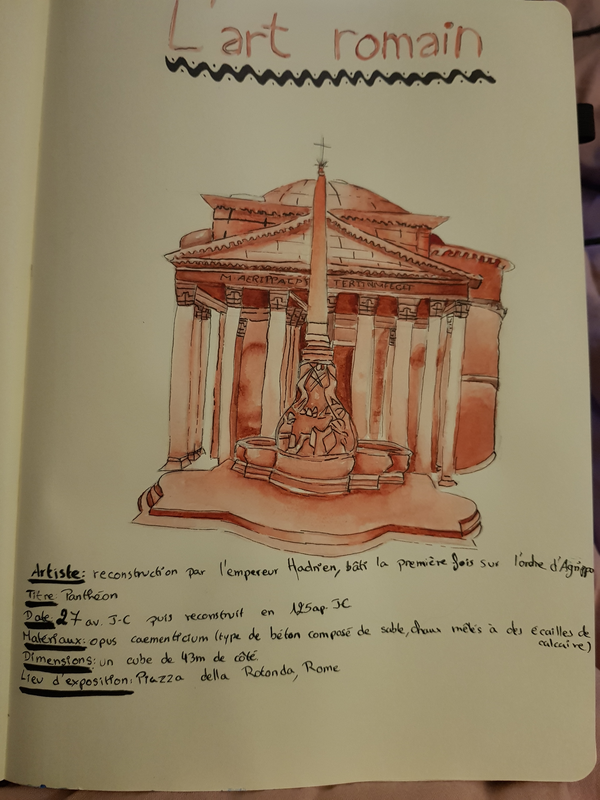 L'art romain
M·AGRIPPA
TERTIVM FECIT
Artiste: reconstruction par l'empereur Hadrien, bâti la première fois sur l'ordre d'Agrippa
Titre: Panthéon
Date: 27 av. J-C puis reconstruit en 125 ap. JC
Matériaux: opus caementicium (type de béton composé de sable, chaux mêlés à des écailles de
calcaire)
Dimensions: un cube de 43m de côté.
Lieu d'exposition: Piazza della Rotonda, Rome